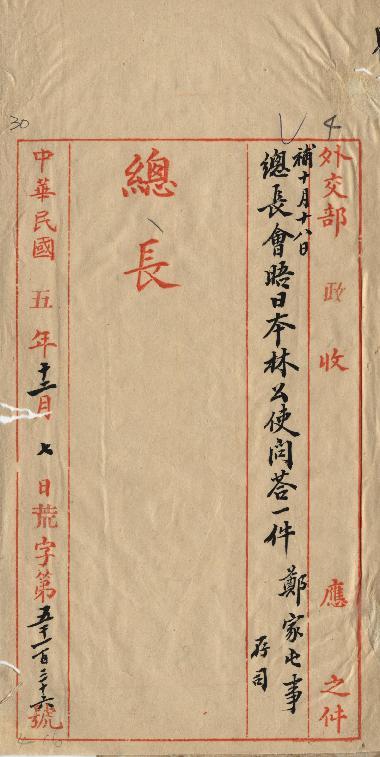 4
外交部 政 收 應 之件
補十月十八日
總長會晤日本林公使問答一件 鄭家屯事
存司
總長
中華民國 五年 十二月 七日 荒字第 五千一百三十六 號
30